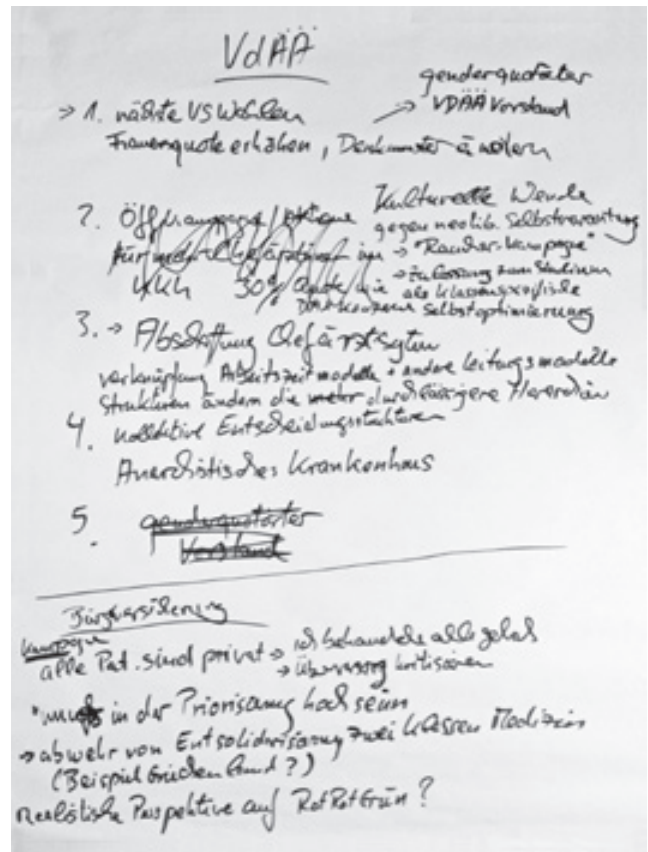 VdÄÄ
genderquotierter
→ 1. nächste VS Wahlen → VDÄÄ Vorstand
Frauenquote erhöhen, Denkmuster ändern
Kulturelle Wende
2. Öff. Kampagne / gegen neolib. Selbstverwertung
für mehr Chefärztinnen im → "Raucher-Kampagne"
UKh 30% Quote wie → Zulassung zum Studium
als klassenspezifische
Selbstoptimierung
3. → Abschaffung Chefarztsystem
verknüpfung Arbeitszeitmodelle + andere Leitungsmodelle
Strukturen ändern die mehr durchlässigere Hierarchien
4. kollektive Entscheidungsstrukturen
Anarchistisches Krankenhaus
5. genderquotierter
Vorstand
Bürgversicherung
Kampagne
alle Pat. sind privat → ich behandele alle gleich
→ überversorg kritisieren
* muss in der Priorisierung hoch sein
→ abwehr von Entsolidarisierung zwei klassen Medizin
(Beispiel Griechenland?)
Realistische Perspektive auf RotRotGrün?